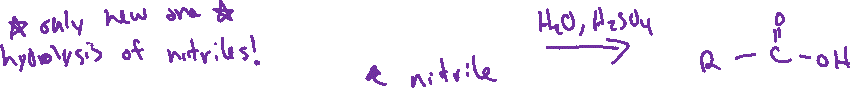 ☆ only new one ☆
hydrolysis of nitriles!
nitrile
H₂O, H₂SO₄
O
R - C - OH